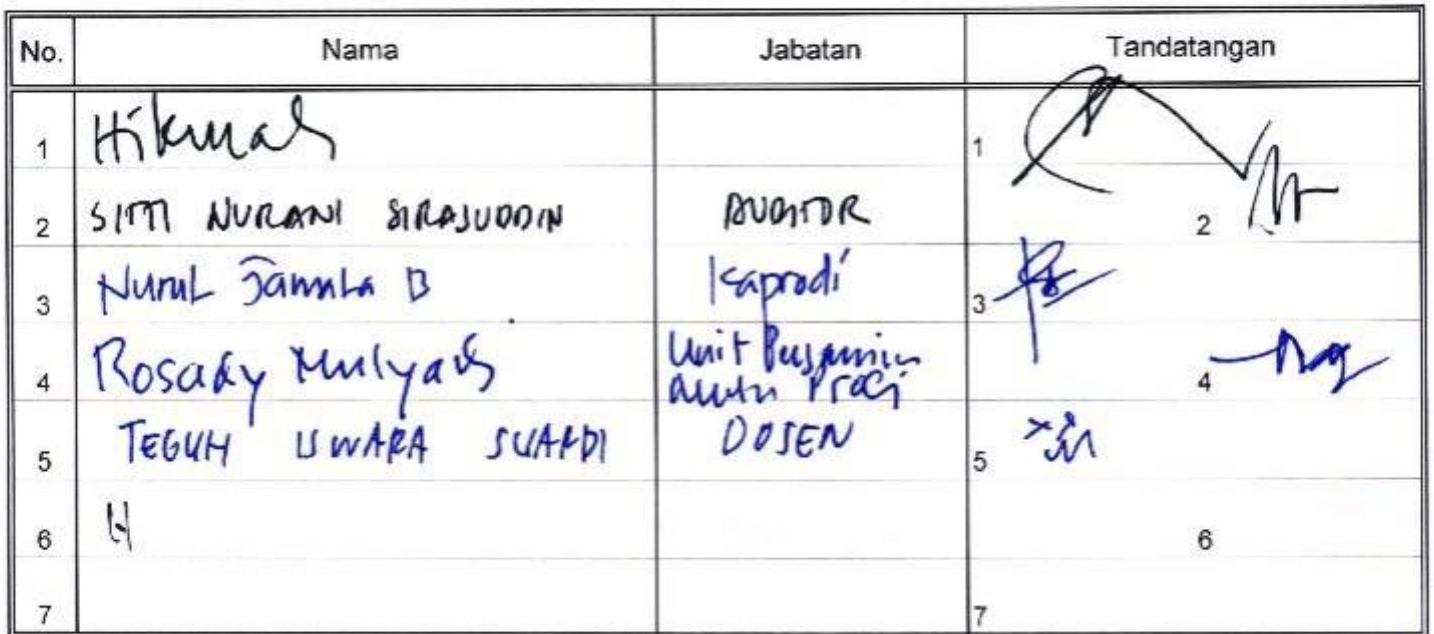 No. Nama Jabatan Tandatangan
1 Hikmah 1
2 SITTI NURANI SIRAJUDDIN AUDITOR 2
3 Nurul Jamala B Kaprodi 3
4 Rosady Mulyadi Unit 4
Prodi
5 TEGUH ISWARA SUARDI DOSEN 5
6 H 6
7 7